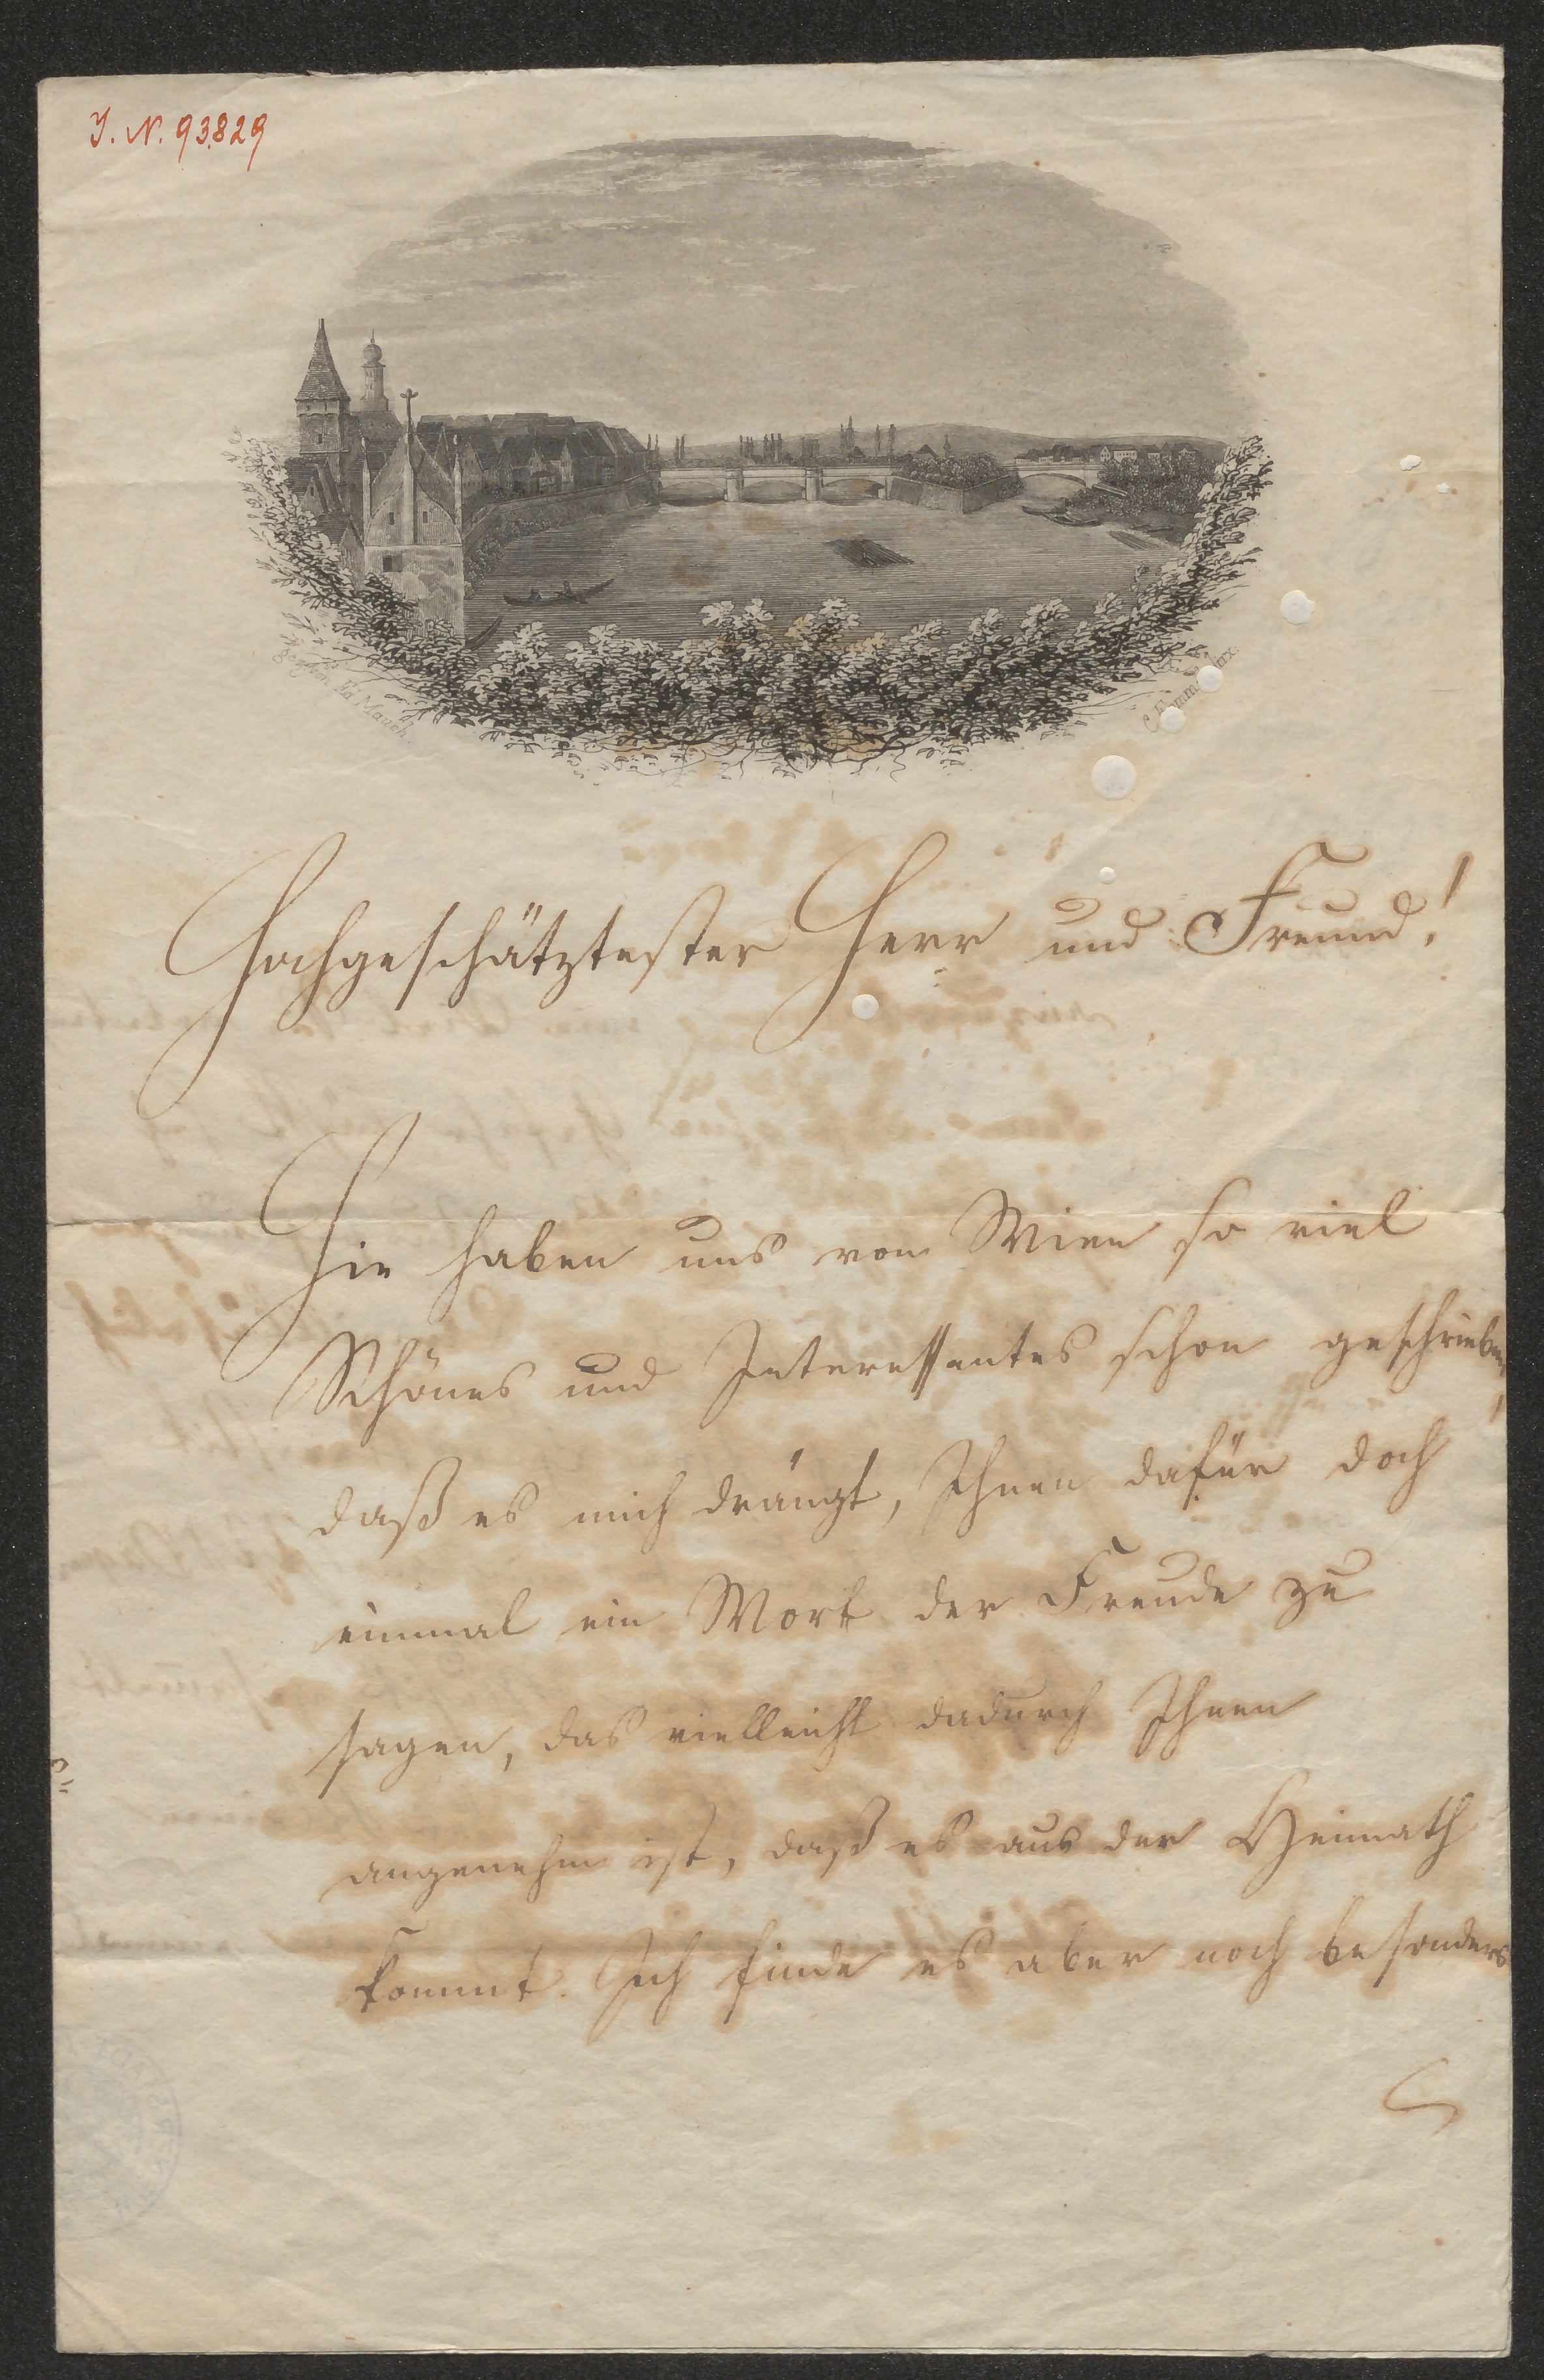 J. N. 93829
Hochgeschätztester Herr und Freund!
Sie haben uns von Wien so viel
Schönes und Interessantes schon geschrieben,
daß es mich drängt, Ihnen dafür doch
einmal ein Wort der Freude zu
sagen, das vielleicht dadurch Ihnen
angenehm ist, daß es aus der Heimath
kommt. Ich finde es aber noch besonders